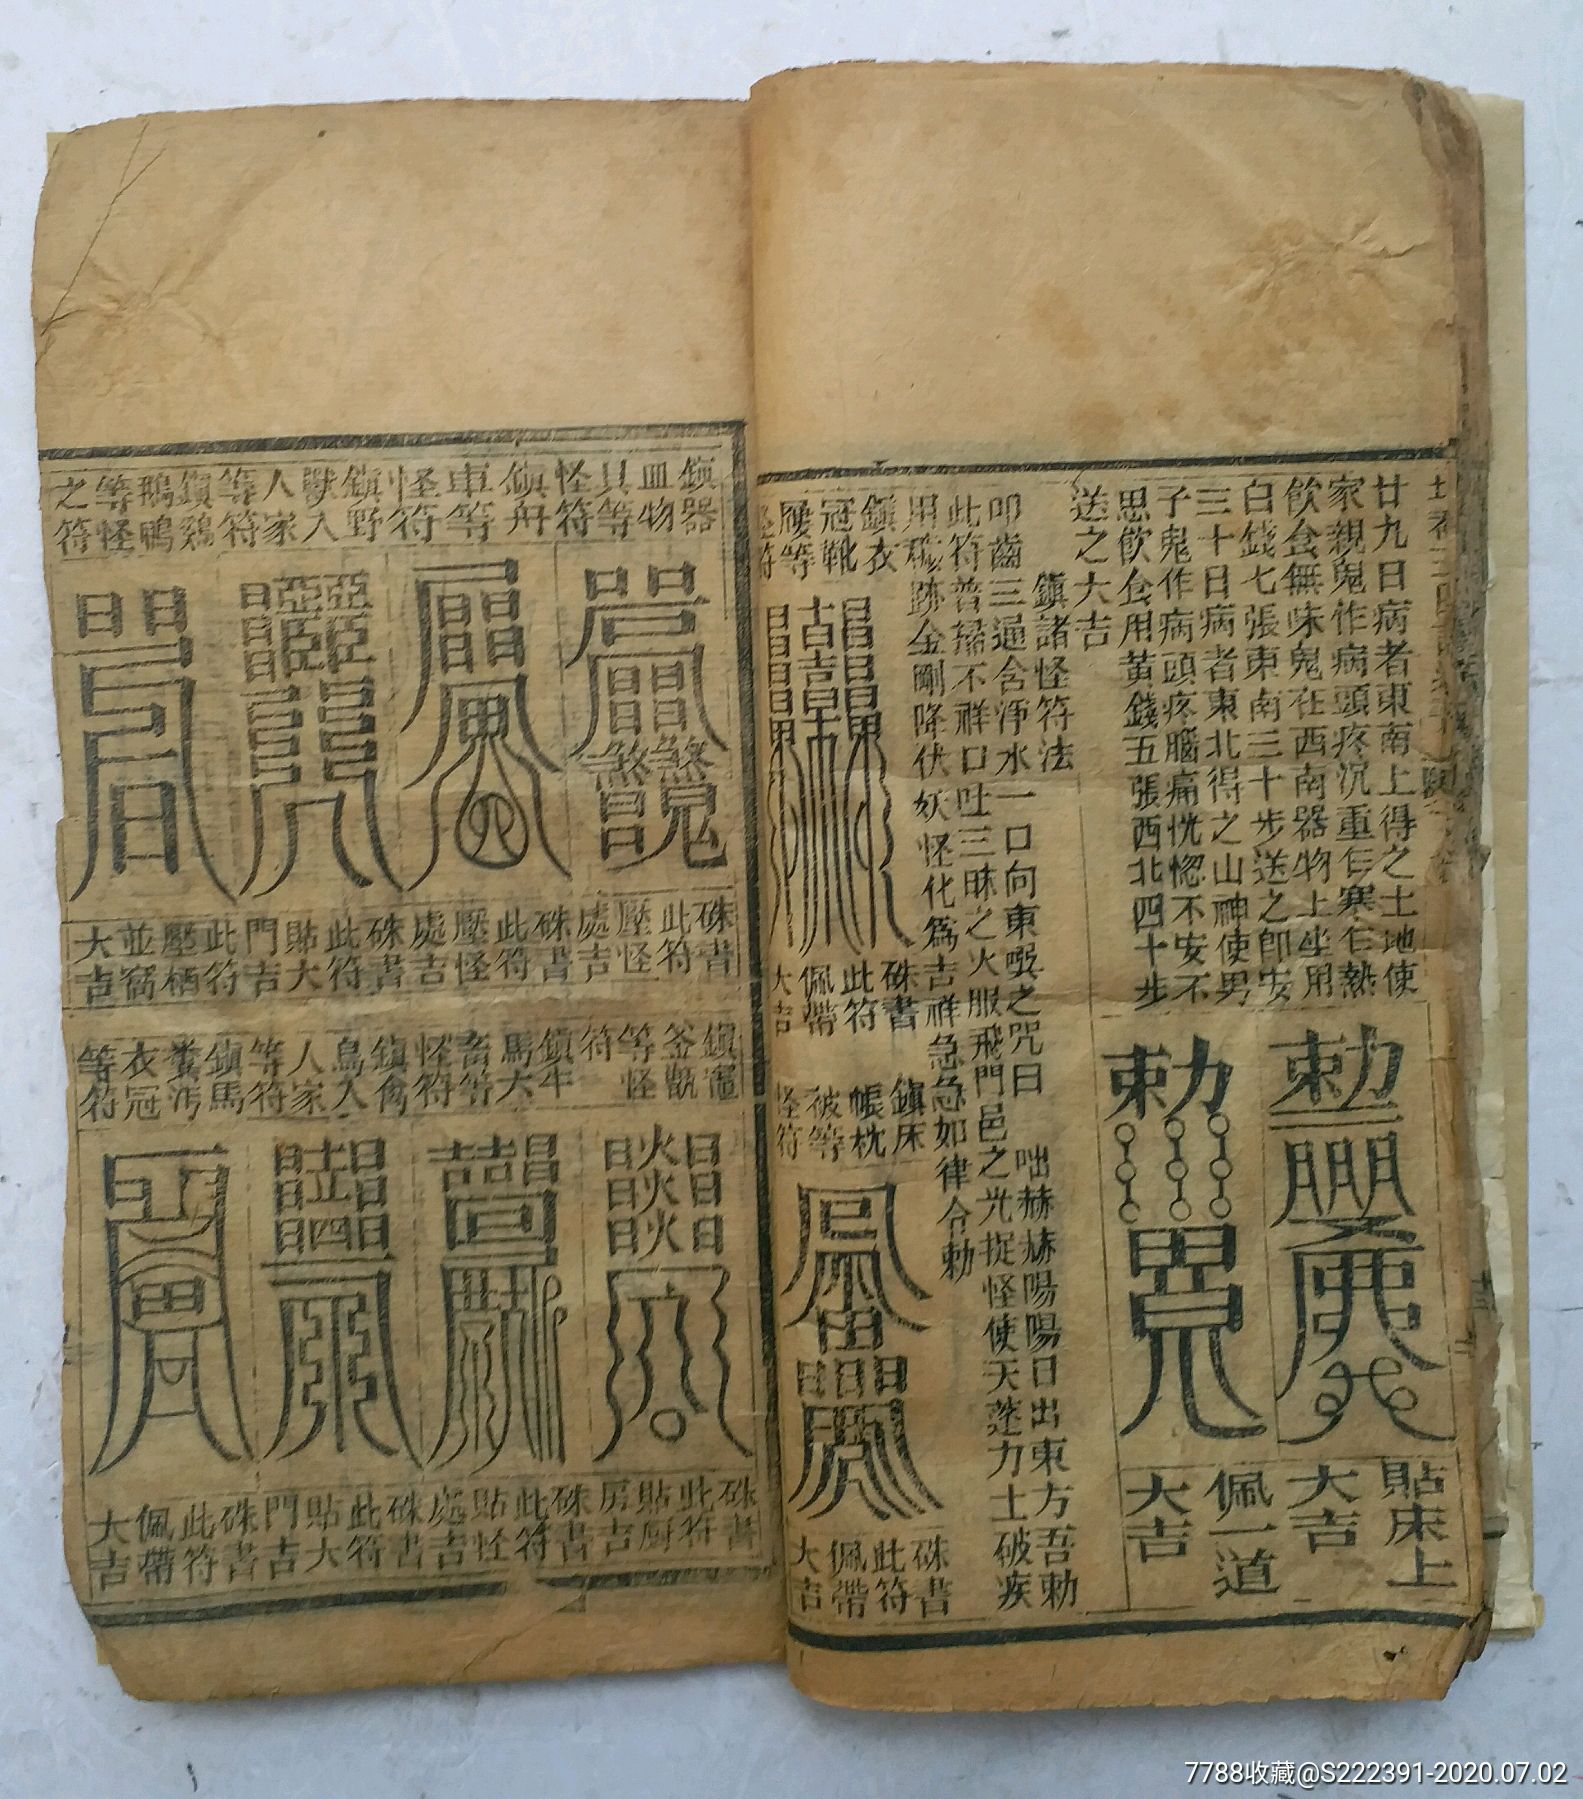 廿九日病者東南上得之土地使
家親鬼作病頭疼沉重乍寒乍熱
飲食無味鬼在西南器物上坐用
白錢七張東南三十步送之即安
三十日病者東北得之山神使男
子鬼作病頭疼腦痛恍惚不安不
思飲食用黃錢五張西北四十步
送之大吉
貼床上
大吉
佩一道
大吉
鎮諸怪符法
叩齒三通含淨水一口向東噀之咒曰
咄赫赫陽陽日出東方吾勅
此符普掃不祥口吐三昧之火服飛門邑之光捉怪使天蓬力士破疾
用 跡金剛降伏妖怪化為吉祥急急如律令勅
鎮衣
冠靴
履等
怪符
硃書
此符
佩帶
大吉
鎮床
帳枕
被等
怪符
硃書
此符
佩帶
大吉
鎮器
皿物
具等
怪符
鎮舟
車等
怪符
鎮野
獸入
人家
等符
鎮鷄
鵶鴨
等怪
之符
硃書
此符
壓怪
處吉
硃書
此符
壓怪
處吉
硃書
此符
貼大
門吉
此符
壓栖
並窩
大吉
鎮竈
釜甑
等怪
符
鎮牛
馬犬
畜等
怪符
鎮禽
鳥入
人家
等符
鎮馬
糞汚
衣冠
等符
硃書
此符
貼厨
房吉
硃書
此符
貼怪
處吉
硃書
此符
貼大
門吉
硃書
此符
佩帶
大吉
7788收藏@S222391-2020.07.02